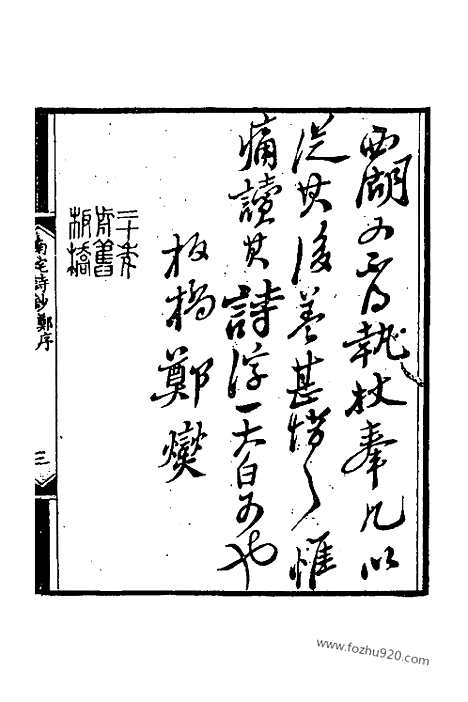 西湖又不得執杖奉几以
從其後益甚惜之惟
痛讀其詩浮一大白可也
板橋鄭燮
二十年
前舊
板橋
宅詩鈔鄭序
三
www.fozhu920.com